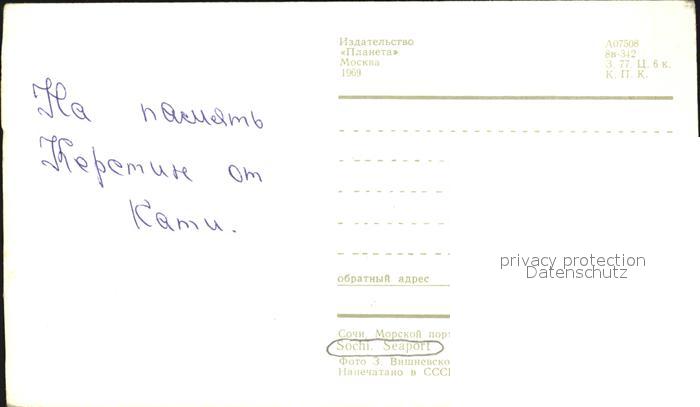 На память
Керстин от
Кати.
Издательство
«Планета»
Москва
1969
А07508
8в-342
З. 77. Ц. 6 к.
К. П. К.
обратный адрес
Сочи. Морской пор
Sochi. Seaport
Фото З. Вишневско
Напечатано в ССС
privacy protection
Datenschutz